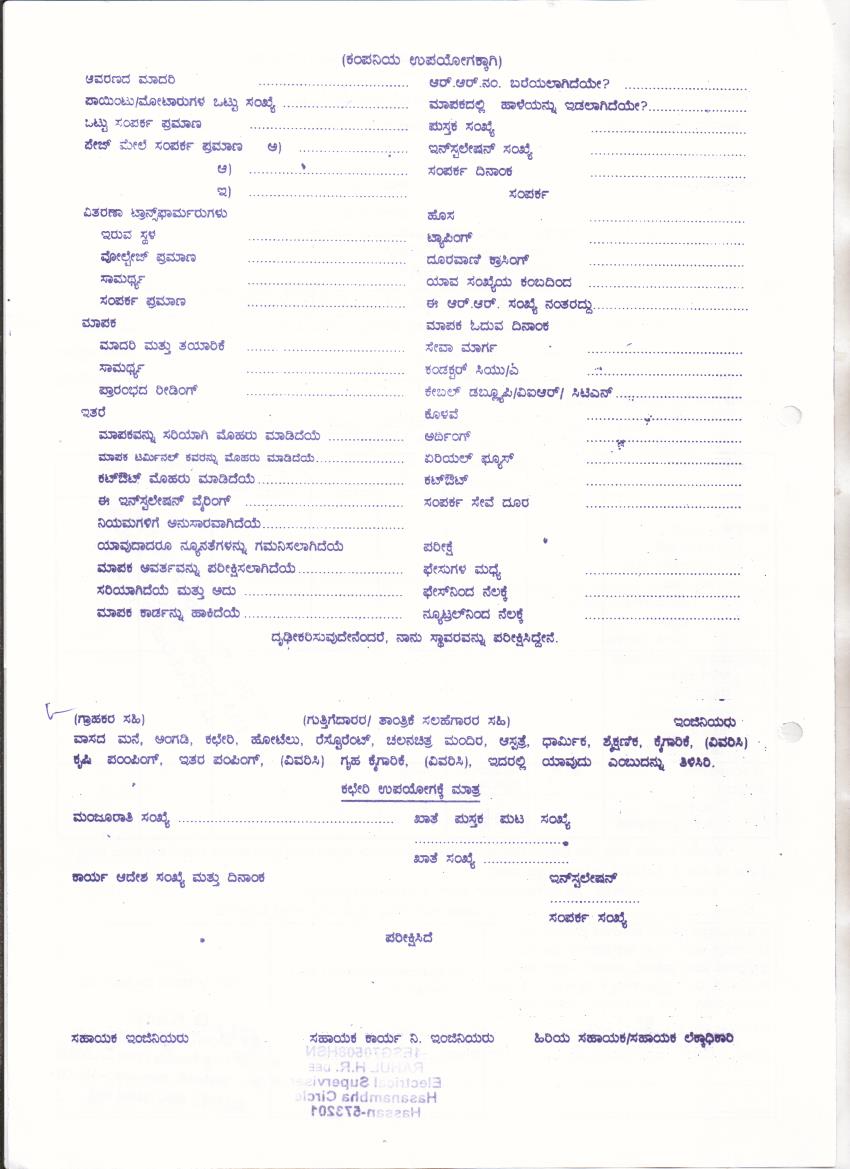 (ಕಂಪನಿಯ ಉಪಯೋಗಕ್ಕಾಗಿ)
ಆವರಣದ ಮಾದರಿ ........................................
ಪಾಯಿಂಟು/ಮೋಟಾರುಗಳ ಒಟ್ಟು ಸಂಖ್ಯೆ .................................
ಒಟ್ಟು ಸಂಪರ್ಕ ಪ್ರಮಾಣ ..........................................
ಪೇಜ್ ಮೇಲೆ ಸಂಪರ್ಕ ಪ್ರಮಾಣ ಅ) .............................
ಆ) ..........................................
ಇ) ..........................................
ವಿತರಣಾ ಟ್ರಾನ್ಸ್‌ಫಾರ್ಮರುಗಳು
ಇರುವ ಸ್ಥಳ ..........................................
ವೋಲ್ಟೇಜ್ ಪ್ರಮಾಣ ..........................................
ಸಾಮರ್ಥ್ಯ ..........................................
ಸಂಪರ್ಕ ಪ್ರಮಾಣ ..........................................
ಮಾಪಕ
ಮಾದರಿ ಮತ್ತು ತಯಾರಿಕೆ ..........................................
ಸಾಮರ್ಥ್ಯ ..........................................
ಪ್ರಾರಂಭದ ರೀಡಿಂಗ್ ..........................................
ಇತರೆ
ಮಾಪಕವನ್ನು ಸರಿಯಾಗಿ ಮೊಹರು ಮಾಡಿದೆಯೆ ....................
ಮಾಪಕ ಟರ್ಮಿನಲ್ ಕವರನ್ನು ಮೊಹರು ಮಾಡಿದೆಯೆ........................
ಕಟ್‌ಔಟ್ ಮೊಹರು ಮಾಡಿದೆಯೆ........................................
ಈ ಇನ್‌ಸ್ಟಲೇಷನ್ ವೈರಿಂಗ್ ..........................................
ನಿಯಮಗಳಿಗೆ ಅನುಸಾರವಾಗಿದೆಯೆ......................................
ಯಾವುದಾದರೂ ನ್ಯೂನತೆಗಳನ್ನು ಗಮನಿಸಲಾಗಿದೆಯೆ
ಮಾಪಕ ಆವರ್ತವನ್ನು ಪರೀಕ್ಷಿಸಲಾಗಿದೆಯೆ............................
ಸರಿಯಾಗಿದೆಯೆ ಮತ್ತು ಅದು ..........................................
ಮಾಪಕ ಕಾರ್ಡನ್ನು ಹಾಕಿದೆಯೆ ..........................................
ಆರ್.ಆರ್.ನಂ. ಬರೆಯಲಾಗಿದೆಯೇ? .................................
ಮಾಪಕದಲ್ಲಿ ಹಾಳೆಯನ್ನು ಇಡಲಾಗಿದೆಯೇ?..........................
ಪುಸ್ತಕ ಸಂಖ್ಯೆ ..........................................
ಇನ್‌ಸ್ಟಲೇಷನ್ ಸಂಖ್ಯೆ ..........................................
ಸಂಪರ್ಕ ದಿನಾಂಕ ..........................................
ಸಂಪರ್ಕ
ಹೊಸ ..........................................
ಟ್ಯಾಪಿಂಗ್ ..........................................
ದೂರವಾಣಿ ಕ್ರಾಸಿಂಗ್ ..........................................
ಯಾವ ಸಂಖ್ಯೆಯ ಕಂಬದಿಂದ ..........................................
ಈ ಆರ್.ಆರ್. ಸಂಖ್ಯೆ ನಂತರದ್ದು..........................................
ಮಾಪಕ ಓದುವ ದಿನಾಂಕ
ಸೇವಾ ಮಾರ್ಗ ..........................................
ಕಂಡಕ್ಟರ್ ಸಿಯು/ಎ ..........................................
ಕೇಬಲ್ ಡಬ್ಲ್ಯೂಪಿ/ವಿಐಆರ್/ ಸಿಟಿಎಸ್ ..................................
ಕೊಳವೆ ..........................................
ಅರ್ಥಿಂಗ್ ..........................................
ಏರಿಯಲ್ ಫ್ಯೂಸ್ ..........................................
ಕಟ್‌ಔಟ್ ..........................................
ಸಂಪರ್ಕ ಸೇವೆ ದೂರ ..........................................
ಪರೀಕ್ಷೆ
ಫೇಸುಗಳ ಮಧ್ಯೆ ..........................................
ಫೇಸ್‌ನಿಂದ ನೆಲಕ್ಕೆ ..........................................
ನ್ಯೂಟ್ರಲ್‌ನಿಂದ ನೆಲಕ್ಕೆ ..........................................
ದೃಢೀಕರಿಸುವುದೇನೆಂದರೆ, ನಾನು ಸ್ಥಾವರವನ್ನು ಪರೀಕ್ಷಿಸಿದ್ದೇನೆ.
(ಗ್ರಾಹಕರ ಸಹಿ) (ಗುತ್ತಿಗೆದಾರರ/ ತಾಂತ್ರಿಕ ಸಲಹೆಗಾರರ ಸಹಿ) ಇಂಜಿನಿಯರು
ವಾಸದ ಮನೆ, ಅಂಗಡಿ, ಕಛೇರಿ, ಹೋಟೆಲು, ರೆಸ್ಟೊರೆಂಟ್, ಚಲನಚಿತ್ರ ಮಂದಿರ, ಆಸ್ಪತ್ರೆ, ಧಾರ್ಮಿಕ, ಶೈಕ್ಷಣಿಕ, ಕೈಗಾರಿಕೆ, (ವಿವರಿಸಿ)
ಕೃಷಿ ಪಂಪಿಂಗ್, ಇತರ ಪಂಪಿಂಗ್, (ವಿವರಿಸಿ) ಗೃಹ ಕೈಗಾರಿಕೆ, (ವಿವರಿಸಿ), ಇದರಲ್ಲಿ ಯಾವುದು ಎಂಬುದನ್ನು ತಿಳಿಸಿರಿ.
ಕಛೇರಿ ಉಪಯೋಗಕ್ಕೆ ಮಾತ್ರ
ಮಂಜೂರಾತಿ ಸಂಖ್ಯೆ .......................................................... ಖಾತೆ ಪುಸ್ತಕ ಪುಟ ಸಂಖ್ಯೆ
..........................................
ಖಾತೆ ಸಂಖ್ಯೆ .......................
ಕಾರ್ಯ ಆದೇಶ ಸಂಖ್ಯೆ ಮತ್ತು ದಿನಾಂಕ ಇನ್‌ಸ್ಟಲೇಷನ್
........................
ಸಂಪರ್ಕ ಸಂಖ್ಯೆ
ಪರೀಕ್ಷಿಸಿದೆ
ಸಹಾಯಕ ಇಂಜಿನಿಯರು ಸಹಾಯಕ ಕಾರ್ಯ ನಿ. ಇಂಜಿನಿಯರು ಹಿರಿಯ ಸಹಾಯಕ/ಸಹಾಯಕ ಲೆಕ್ಕಾಧಿಕಾರಿ
RAHUL H.R. DEE
Electrical Supervisor
Hasanamba Circle
Hassan-573201